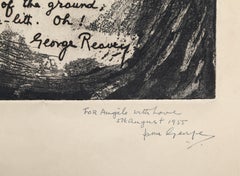 of the ground;
-litt. Oh!
George Reavey
For Angelo with Love
5th August 1955
from George